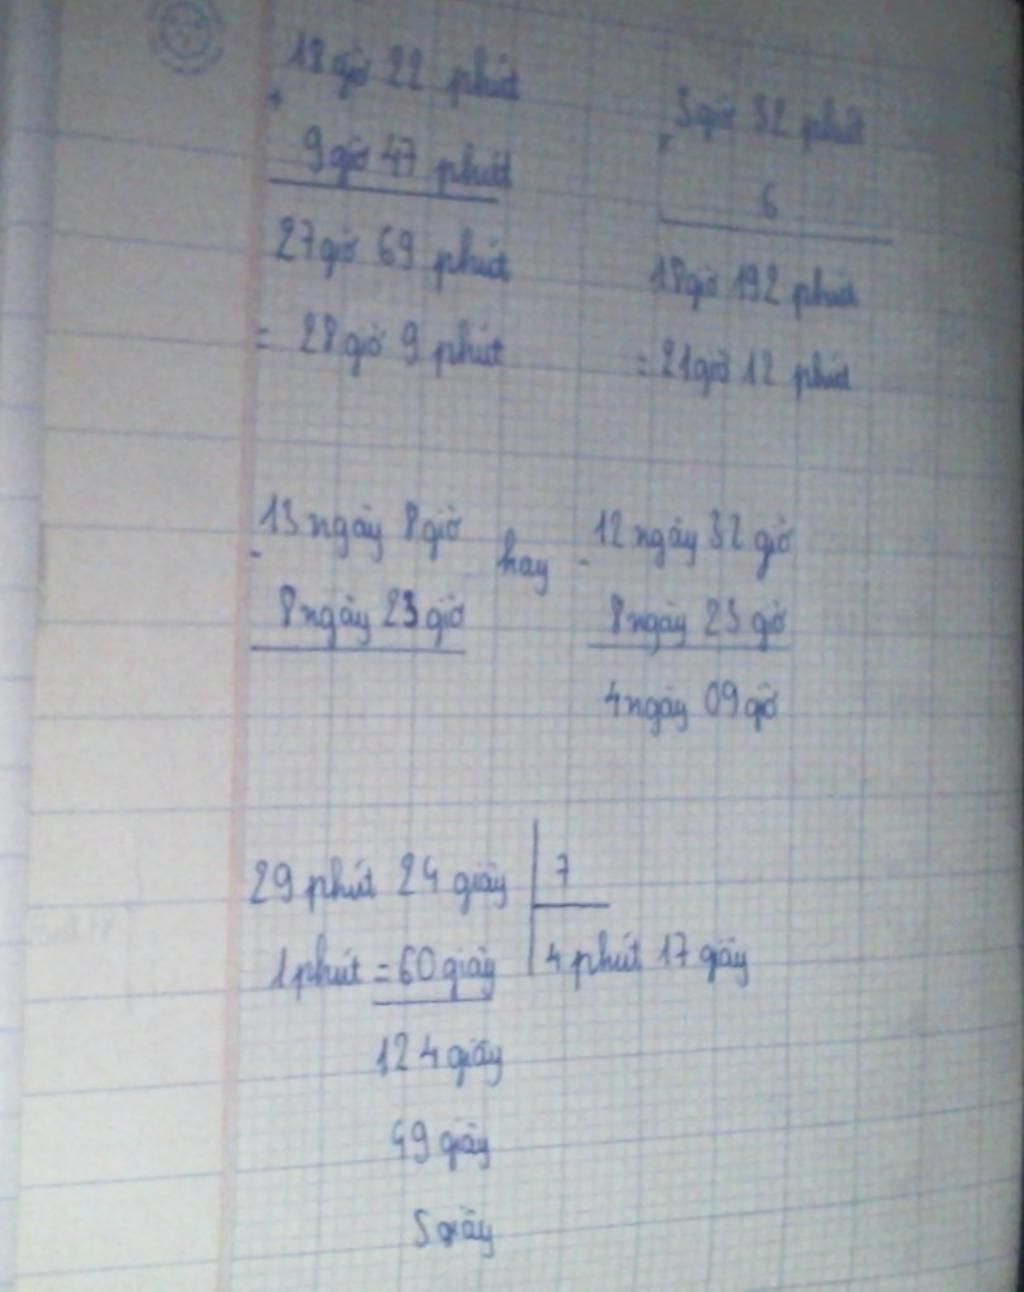 18 giờ 22 phút
+
9 giờ 47 phút
27 giờ 69 phút
= 28 giờ 9 phút
3 giờ 32 phút
x
6
18 giờ 192 phút
= 21 giờ 12 phút
13 ngày 8 giờ
-
8 ngày 23 giờ
hay
12 ngày 32 giờ
-
8 ngày 23 giờ
4 ngày 09 giờ
29 phút 24 giây 7
1 phút = 60 giây 4 phút 17 giây
124 giây
49 giây
5 giây